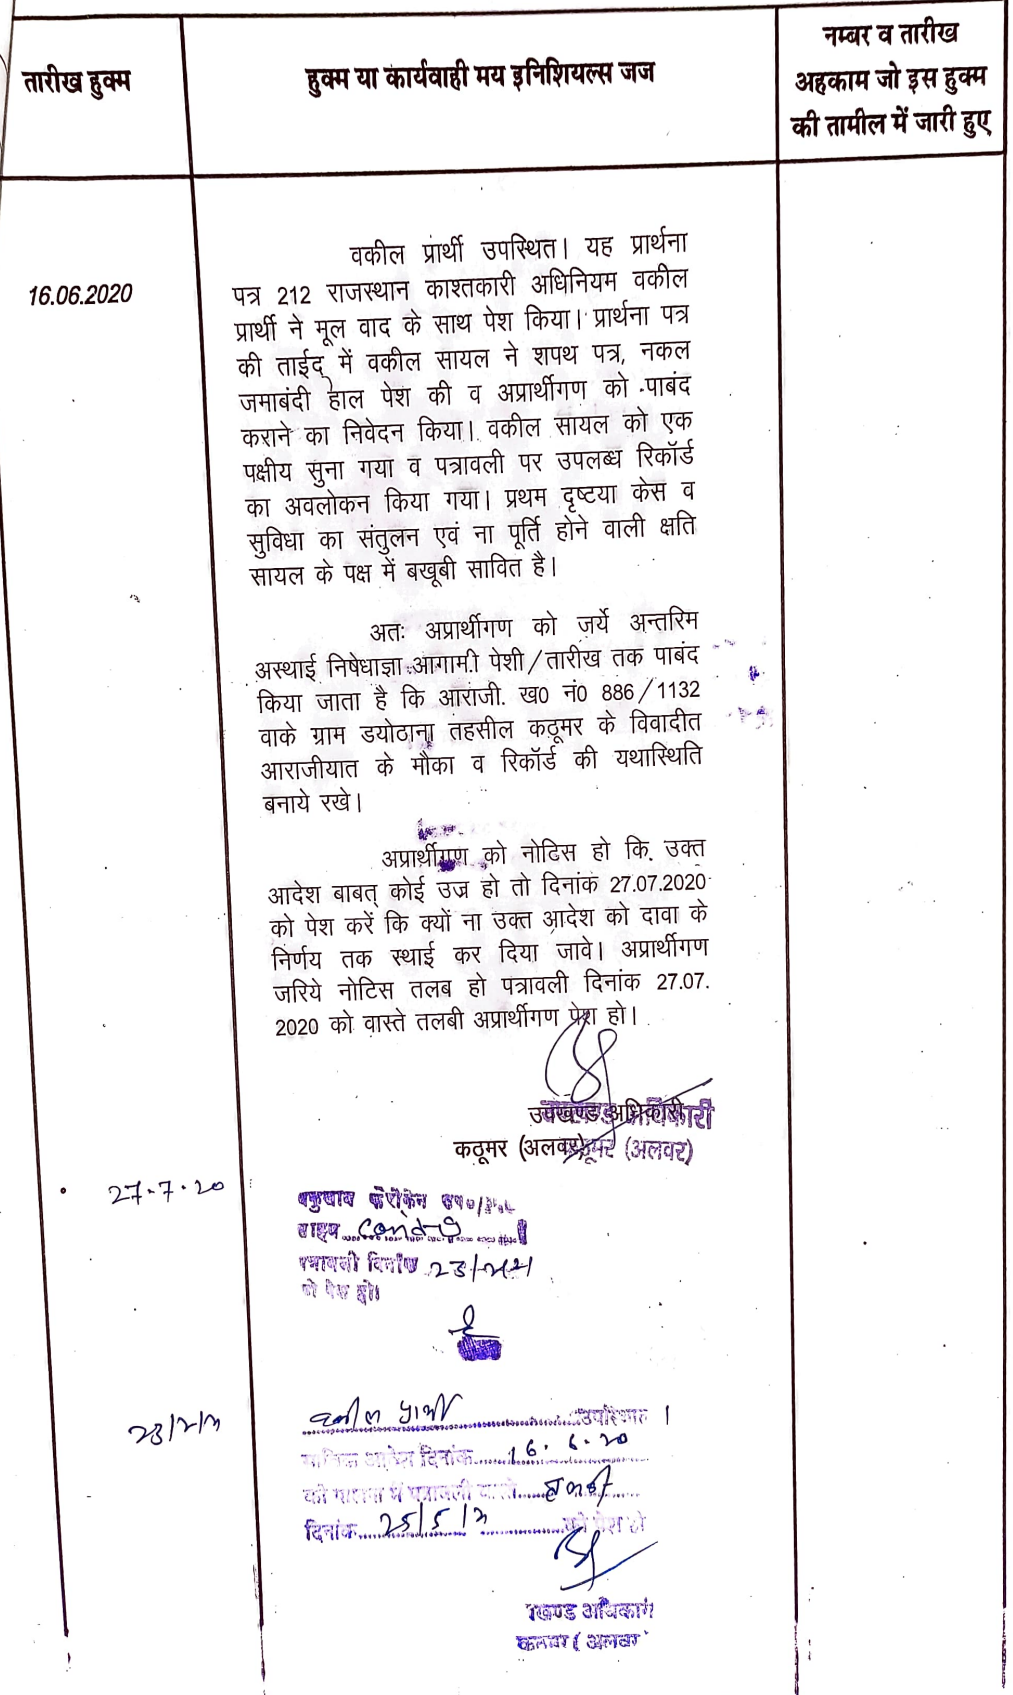 तारीख हुक्म
हुक्म या कार्यवाही मय इनिशियल्स जज
नम्बर व तारीख
अहकाम जो इस हुक्म
की तामील में जारी हुए
16.06.2020
वकील प्रार्थी उपस्थित। यह प्रार्थना
पत्र 212 राजस्थान काश्तकारी अधिनियम वकील
प्रार्थी ने मूल वाद के साथ पेश किया। प्रार्थना पत्र
की ताईद् में वकील सायल ने शपथ पत्र, नकल
जमाबंदी हाल पेश की व अप्रार्थीगण को पाबंद
कराने का निवेदन किया। वकील सायल को एक
पक्षीय सुना गया व पत्रावली पर उपलब्ध रिकॉर्ड
का अवलोकन किया गया। प्रथम दृष्टया केस व
सुविधा का संतुलन एवं ना पूर्ति होने वाली क्षति
सायल के पक्ष में बखूबी सावित है।
अतः अप्रार्थीगण को जर्ये अन्तरिम
अस्थाई निषेधाज्ञा आगामी पेशी/तारीख तक पाबंद
किया जाता है कि आराजी. ख0 नं0 886/1132
वाके ग्राम डयोठाना तहसील कठूमर के विवादीत
आराजीयात के मौका व रिकॉर्ड की यथास्थिति
बनाये रखे।
अप्रार्थीगण को नोटिस हो कि. उक्त
आदेश बाबत् कोई उज्र हो तो दिनांक 27.07.2020
को पेश करें कि क्यों ना उक्त आदेश को दावा के
निर्णय तक स्थाई कर दिया जावे। अप्रार्थीगण
जरिये नोटिस तलब हो पत्रावली दिनांक 27.07.
2020 को वास्ते तलबी अप्रार्थीगण पेश हो।
उपखण्ड अधिकारी
कठूमर (अलवर)
कठूमर (अलवर)
27.7.20
पत्रावली दिनांक
को पेश हो।
वकील प्रार्थी उपस्थित।
आदेश दिनांक 16.6.20
की पालना में पत्रावली वास्ते तलबी
दिनांक 25/5/21 को पेश हो
खण्ड अधिकारी
(अलवर